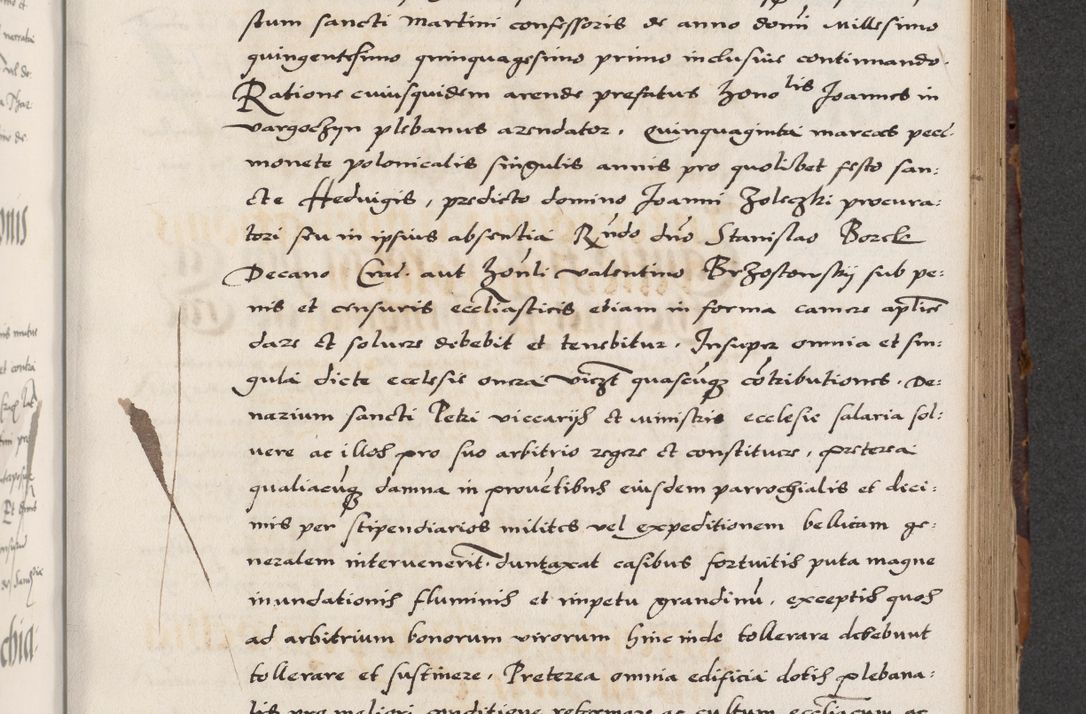 stum sancti Martini confessoris de anno domi Millesimo
quingentesimo quinquagesimo primo inclusiue continuando.
Ratione cuiusquidem arende prefatus Honolis Joannes in
Vargochyn plebanus arendator, Quinquaginta marcas pecc:
monete polonicalis singulis annis pro quolibet festo san:
cte Hedwigis, predicto domino Joanni Zoleczki procura:
tori seu in ipsius absentia Rndo dno Stanislao Borek
Decano Crac. aut Honli Valentino Brzostowskij sub pe:
nis et censuris eccliasticis etiam in forma camere aplice
dare et soluere debebit et tenebitur. Insuper omnia et sin:
gula dicte ecclesie onera vizt quascuq cotributiones, De:
narium sancti Petri viccarijs et ministris ecclesie salaria sol:
uere ac illos pro suo arbitrio regere et constituere, preterea
qualiacuq damna in prouetibus eiusdem parrochialis et deci:
mis per stipendiarios milites vel expeditionem bellicam ge:
neralem interuenerit. Duntaxat casibus fortuitis puta magne
inundationis fluminis et impetu grandinu, exceptis quos
ad arbitrium bonorum virorum hinc inde tollerare debebunt
tollerare et sustinere. Preterea omnia edificia dotis plebana:
lis pro meliori conditione reformare ac cultum eccliacum ac